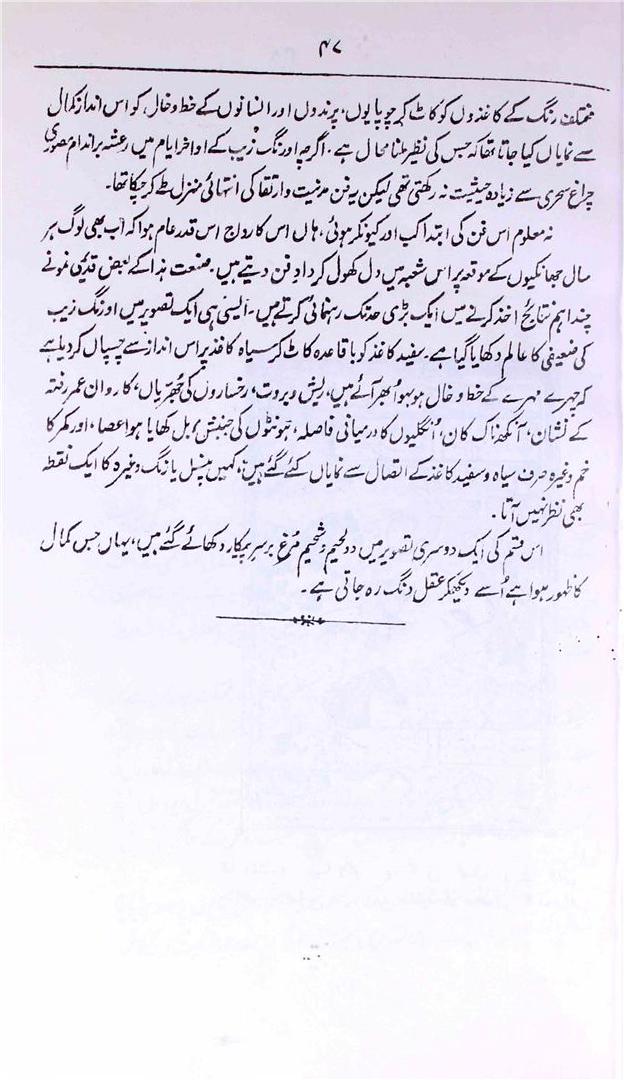 ۴۷
مختلف رنگ کے کاغذوں کو کاٹ کر چوپایوں، پرندوں اور انسانوں کے خط و خال، کو اس انداز کمال
سے نمایاں کیا جاتا تھا کہ جس کی نظیر ملنا محال ہے۔ اگرچہ اورنگ زیب کے اواخر ایام میں رعشہ براندام مصوری
چراغ سحری سے زیادہ حیثیت نہ رکھتی تھی لیکن یہ فن مزنیت و ارتقا کی انتہائی منزل طے کر چکا تھا۔
نہ معلوم اس فن کی ابتدا کب اور کیونکر ہوئی، ہاں اس کا رواج اس قدر عام ہوا کہ اب بھی لوگ ہر
سال جھانکیوں کے موقعہ پر اس شعبہ میں دل کھول کر دادِ فن دیتے ہیں۔ صنعت ہذا کے بعض قدیمی نمونے
چند اہم نتائج اخذ کرنے میں ایک بڑی حد تک رہنمائی کرتے ہیں۔ ایسی ہی ایک تصویر میں اورنگ زیب
کی ضعیفی کا عالم دکھایا گیا ہے۔ سفید کاغذ کو باقاعدہ کاٹ کر سیاہ کاغذ پر اس انداز سے چسپاں کر دیا ہے
کہ چہرے مہرے کے خط و خال ہو بہو اُبھر آئے ہیں، ریش و بروت، رخساروں کی جُھرّیاں، کاروان عمر رفتہ
کے نشان، آنکھ ناک کان، اُنگلیوں کا درمیانی فاصلہ، ہونٹوں کی جنبش، بل کھایا ہوا عصا، اور کمر کا
خم وغیرہ صرف سیاہ و سفید کاغذ کے اتصال سے نمایاں کئے گئے ہیں، کہیں پنسل یا رنگ وغیرہ کا ایک نقطہ
بھی نظر نہیں آتا۔
اس قسم کی ایک دوسری تصویر میں دو لحیم و شحیم مرغ برسرِ پیکار دکھائے گئے ہیں، یہاں جس کمال
کا ظہور ہوا ہے اُسے دیکھکر عقل دنگ رہ جاتی ہے۔